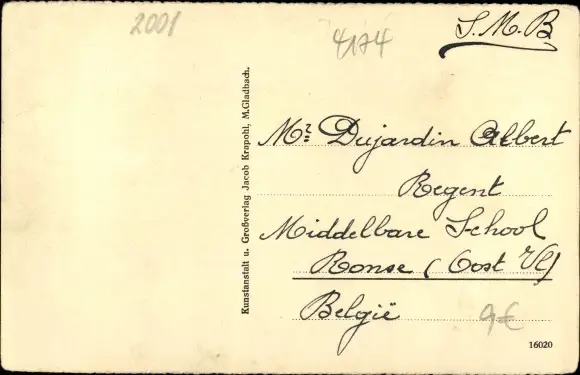 2001
4174
S.M.B
Mr Dujardin Albert
Regent
Middelbare School
Ronse (Oost Vl)
België
9€
Kunstanstalt u. Großverlag Jacob Krapohl, M.Gladbach.
16020